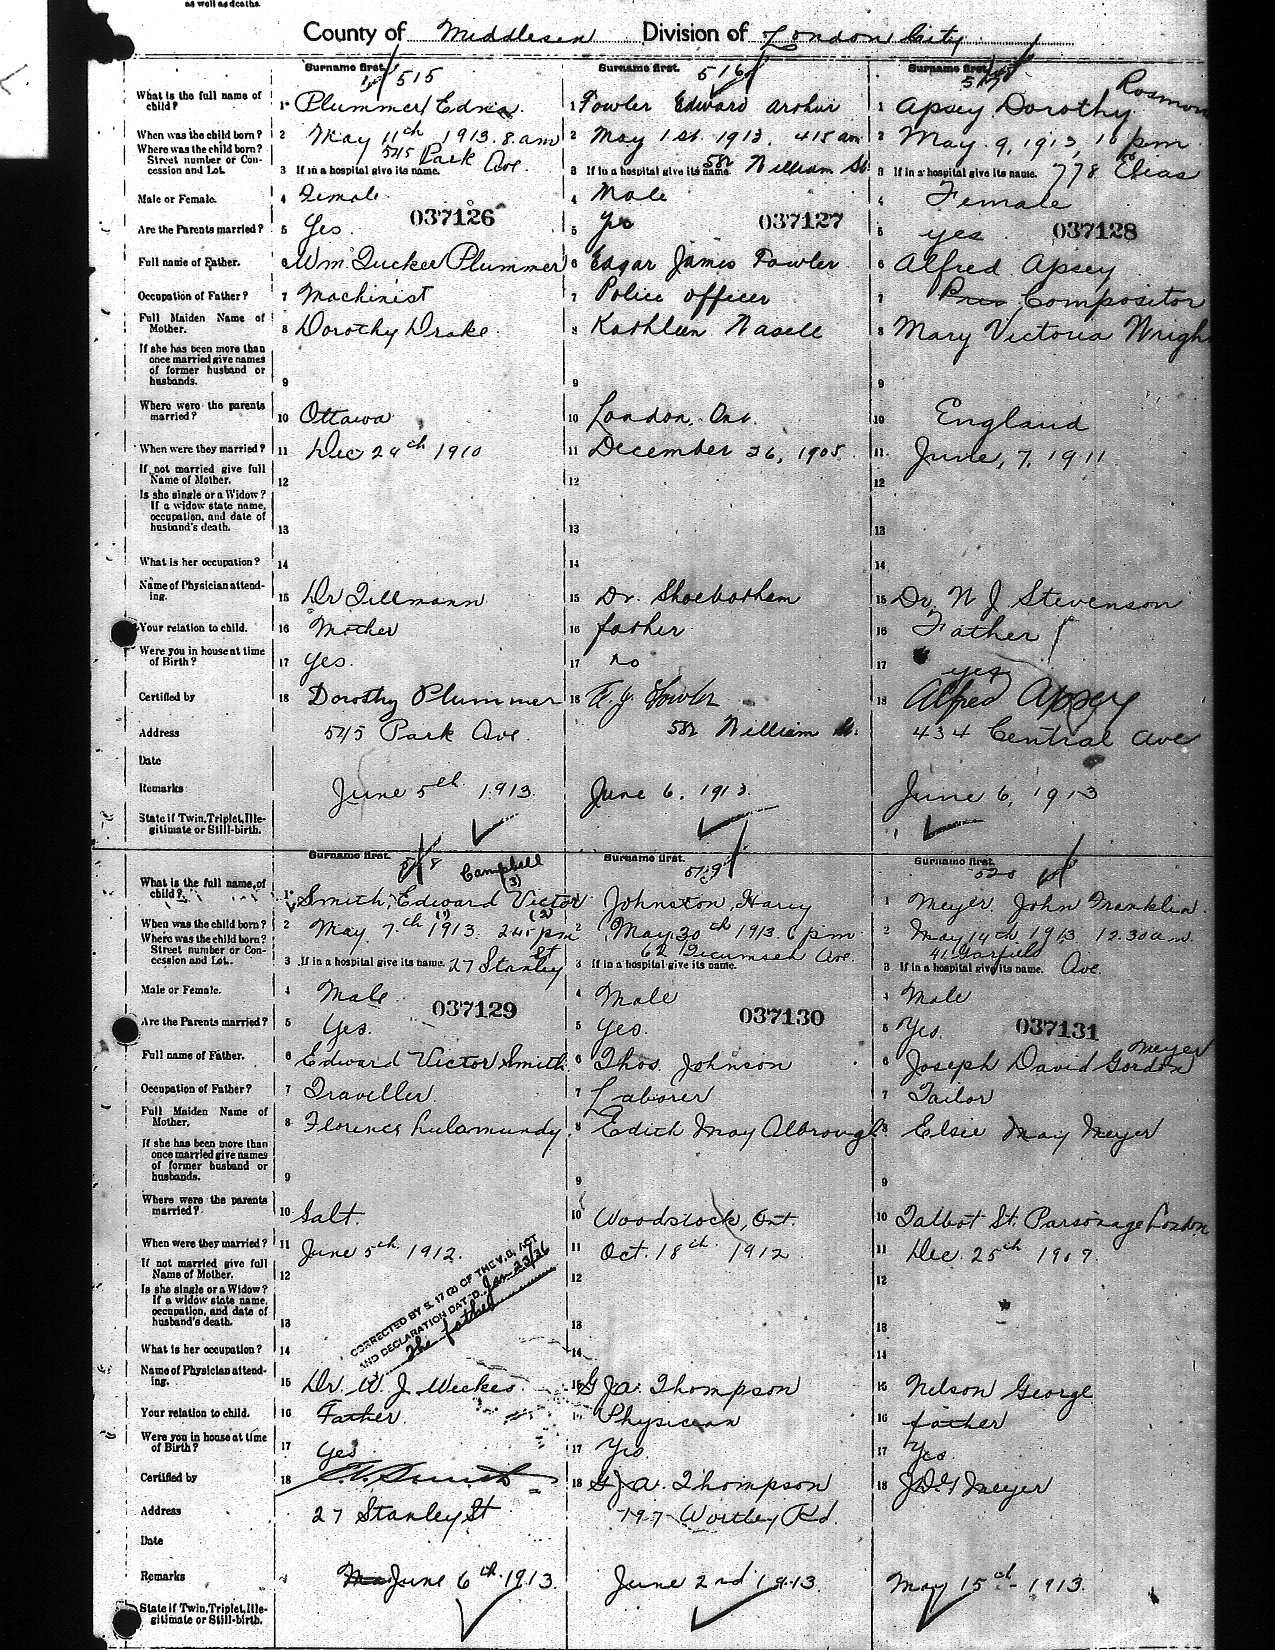 as well as deaths.
County of Middlesex Division of London City
Surname first. Surname first. Surname first.
515 516 517
What is the full name of child? 1 Plummer Edna 1 Fowler Edward Arthur 1 Apsey Dorothy
When was the child born? 2 May 11th 1913. 8 am 2 May 1st. 1913. 415 am 2 May. 9, 1913, 10 pm
Where was the child born? Street number or Concession and Lot. 3 If in a hospital give its name. 545 Park Ave. 3 If in a hospital give its name. 582 William St. 3 If in a hospital give its name. 778 Elias
Male or Female. 4 Female 4 Male 4 Female
037126 037127 037128
Are the Parents married? 5 Yes. 5 Yes 5 yes
Full name of Father. 6 Wm. Tucker Plummer 6 Edgar James Fowler 6 Alfred Apsey
Occupation of Father? 7 Machinist 7 Police officer 7 Compositor
Full Maiden Name of Mother. 8 Dorothy Drake. 8 Kathleen 8 Mary Victoria Wrigh
If she has been more than once married give names of former husband or husbands. 9 9 9
Where were the parents married? 10 Ottawa 10 London, Ont. 10 England
When were they married? 11 Dec 24th 1910 11 December 26, 1905. 11 June, 7, 1911
If not married give full Name of Mother. 12 12 12
Is she single or a Widow? If a widow state name, occupation, and date of husband's death. 13 13 13
What is her occupation? 14 14 14
Name of Physician attending. 15 Dr Tillmann 15 Dr. Shoebotham 15 Dr, N J Stevenson
Your relation to child. 16 Mother 16 father 16 Father
Were you in house at time of Birth? 17 yes. 17 no 17 yes
Certified by 18 Dorothy Plummer 18 E. J. Fowler 18 Alfred Apsey
Address 545 Park Ave. 582 William St. 434 Central Ave
Date
Remarks June 5th 1913. June 6. 1913. June 6, 1913
State if Twin, Triplet, Illegitimate or Still-birth.
Surname first. Surname first. Surname first.
518 Campbell (3) 519 520
What is the full name of child? 1 Smith, Edward Victor 1 Johnston, Harry 1 Meyer, John Franklin.
(1) (2)
When was the child born? 2 May 7th 1913. 245 pm 2 May 30th 1913. 6 pm 2 May 14th 1913 12.30 am.
Where was the child born? Street number or Concession and Lot. 3 If in a hospital give its name. 27 Stanley St 3 If in a hospital give its name. 62 Tecumseh Ave. 3 If in a hospital give its name. 41 Garfield Ave.
Male or Female. 4 Male 4 Male 4 Male
037129 037130 037131
Are the Parents married? 5 Yes. 5 Yes. 5 Yes.
Full name of Father. 6 Edward Victor Smith 6 Thos. Johnson 6 Joseph David Gordon Meyer
Occupation of Father? 7 Traveller 7 Laborer 7 Tailor
Full Maiden Name of Mother. 8 Florence 8 Edith May Albrough 8 Elsie May Meyer
If she has been more than once married give names of former husband or husbands. 9 9 9
Where were the parents married? 10 Galt. 10 Woodstock, Ont. 10 Talbot St. Parsonage London
When were they married? 11 June 5th 1912. 11 Oct. 18th 1912 11 Dec. 25th 1909.
If not married give full Name of Mother. 12 12 12
Is she single or a Widow? If a widow state name, occupation, and date of husband's death. 13 13 13
CORRECTED BY S. 17 (2) OF THE V.S. ACT
AND DECLARATION DATED Jan 23/36
The father
What is her occupation? 14 14 14
Name of Physician attending. 15 Dr W. J. Weekes. 15 G J A. Thompson 15 Nelson George
Your relation to child. 16 Father. 16 Physician 16 father
Were you in house at time of Birth? 17 Yes 17 Yes. 17 Yes.
Certified by 18 E V. Smith 18 G J A. Thompson 18 J D G Meyer
Address 27 Stanley St 197 Wortley Rd.
Date
Remarks June 6th 1913. June 2nd 1913. May 15th - 1913.
State if Twin, Triplet, Illegitimate or Still-birth.